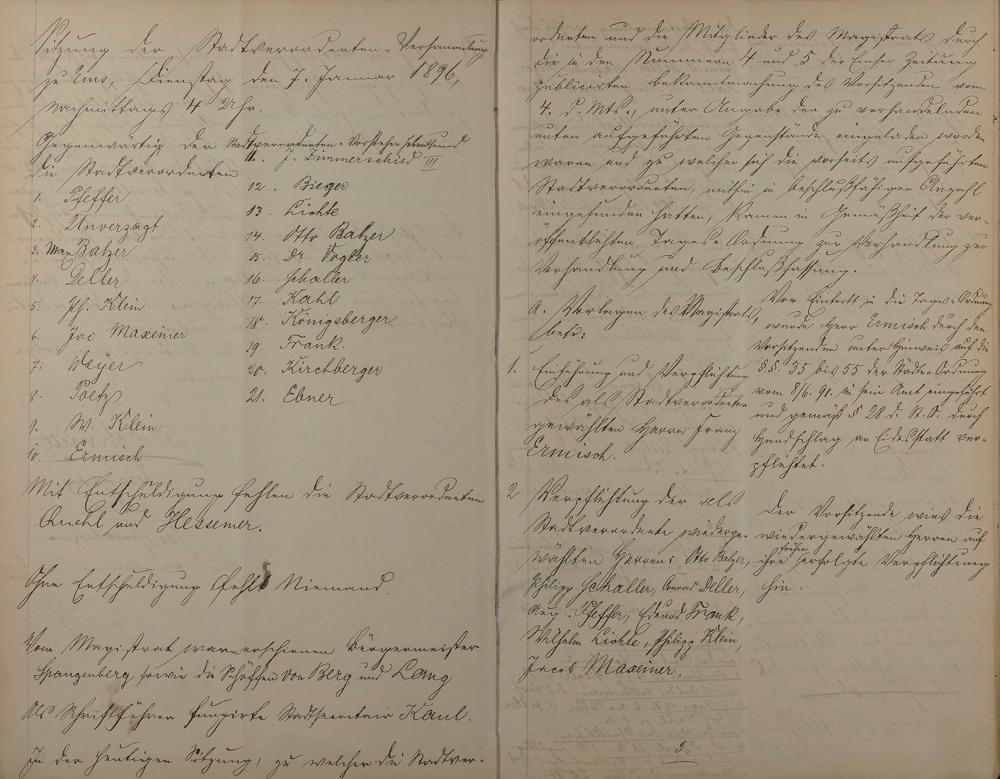 Sitzung der Stadtverordneten-Versammlung
zu Ems, Dienstag den 7. Januar 1896,
Nachmittags 4 Uhr.
Gegenwärtig der Stadtverordneten-Vorsteher und
die Stadtverordneten
1. Pfeffer
2. Unverzagt
3. Max Balzer
4. Deller
5. Ph. Klein
6. Jac. Maxeiner
7. Weyer
8. Poetz
9. W. Klein
10. Ermisch
11. J. Linnerschied III
12. Bieger
13. Lichte
14. Otto Balzer
15. Dr Vogler
16. Schaller
17. Kahl
18. Königsberger
19. Frank.
20. Kirchberger
21. Ebner
Mit Entschuldigung fehlen die Stadtverordneten
und Hessemer.
Ohne Entschuldigung fehlt Niemand.
Vom Magistrat waren erschienen Bürgermeister
Spangenberg sowie die Schöffen von Berg und Lang
Als Schriftführer fungirte Stadtsecretair Kaul.
In der heutigen Sitzung, zu welcher die Stadtver-
ordneten und die Mitglieder des Magistrats durch
die in den Nummern 4 und 5 der Emser Zeitung
publicirten Bekanntmachung des Vorsitzenden vom
4. d. Mts., unter Angabe der zu verhandelnden
unten aufgeführten Gegenstände eingeladen worden
waren und zu welcher sich die vorseits aufgeführten
Stadtverordneten, mithin in beschlußfähiger Anzahl
eingefunden hatten, kamen in Gemäßheit der ver-
öffentlichten Tages-Ordnung zur Verhandlung zur
Verhandlung und Beschlußfassung.
A. Vorlagen des Magistrats,
betr:
1. Einführung und Verpflichtung
des als Stadtverordneter
gewählten Herrn Franz
Ermisch.
Vor Eintritt in die Tages-Ordnung
wurde Herr Ermisch durch den
Vorsitzenden unter Hinweis auf die
§§. 35 bis 55 der Städte-Ordnung
vom 8/6. 91. in sein Amt eingeführt
und gemäß § 28 d. St. O. durch
Handschlag an Eidesstatt ver-
pflichtet.
2 Verpflichtung der als
Stadtverordnete wiederge-
wählten Herren: Otto Balzer,
Philipp Schaller, Conrad Deller,
Aug. Pfeffer, Eduard Frank,
Wilhelm Lichte, Philipp Klein,
Jacob Maxeiner.
Der Vorsitzende wies die
wiedergewählten Herren auf
ihre früher erfolgte Verpflichtung
hin.
3.